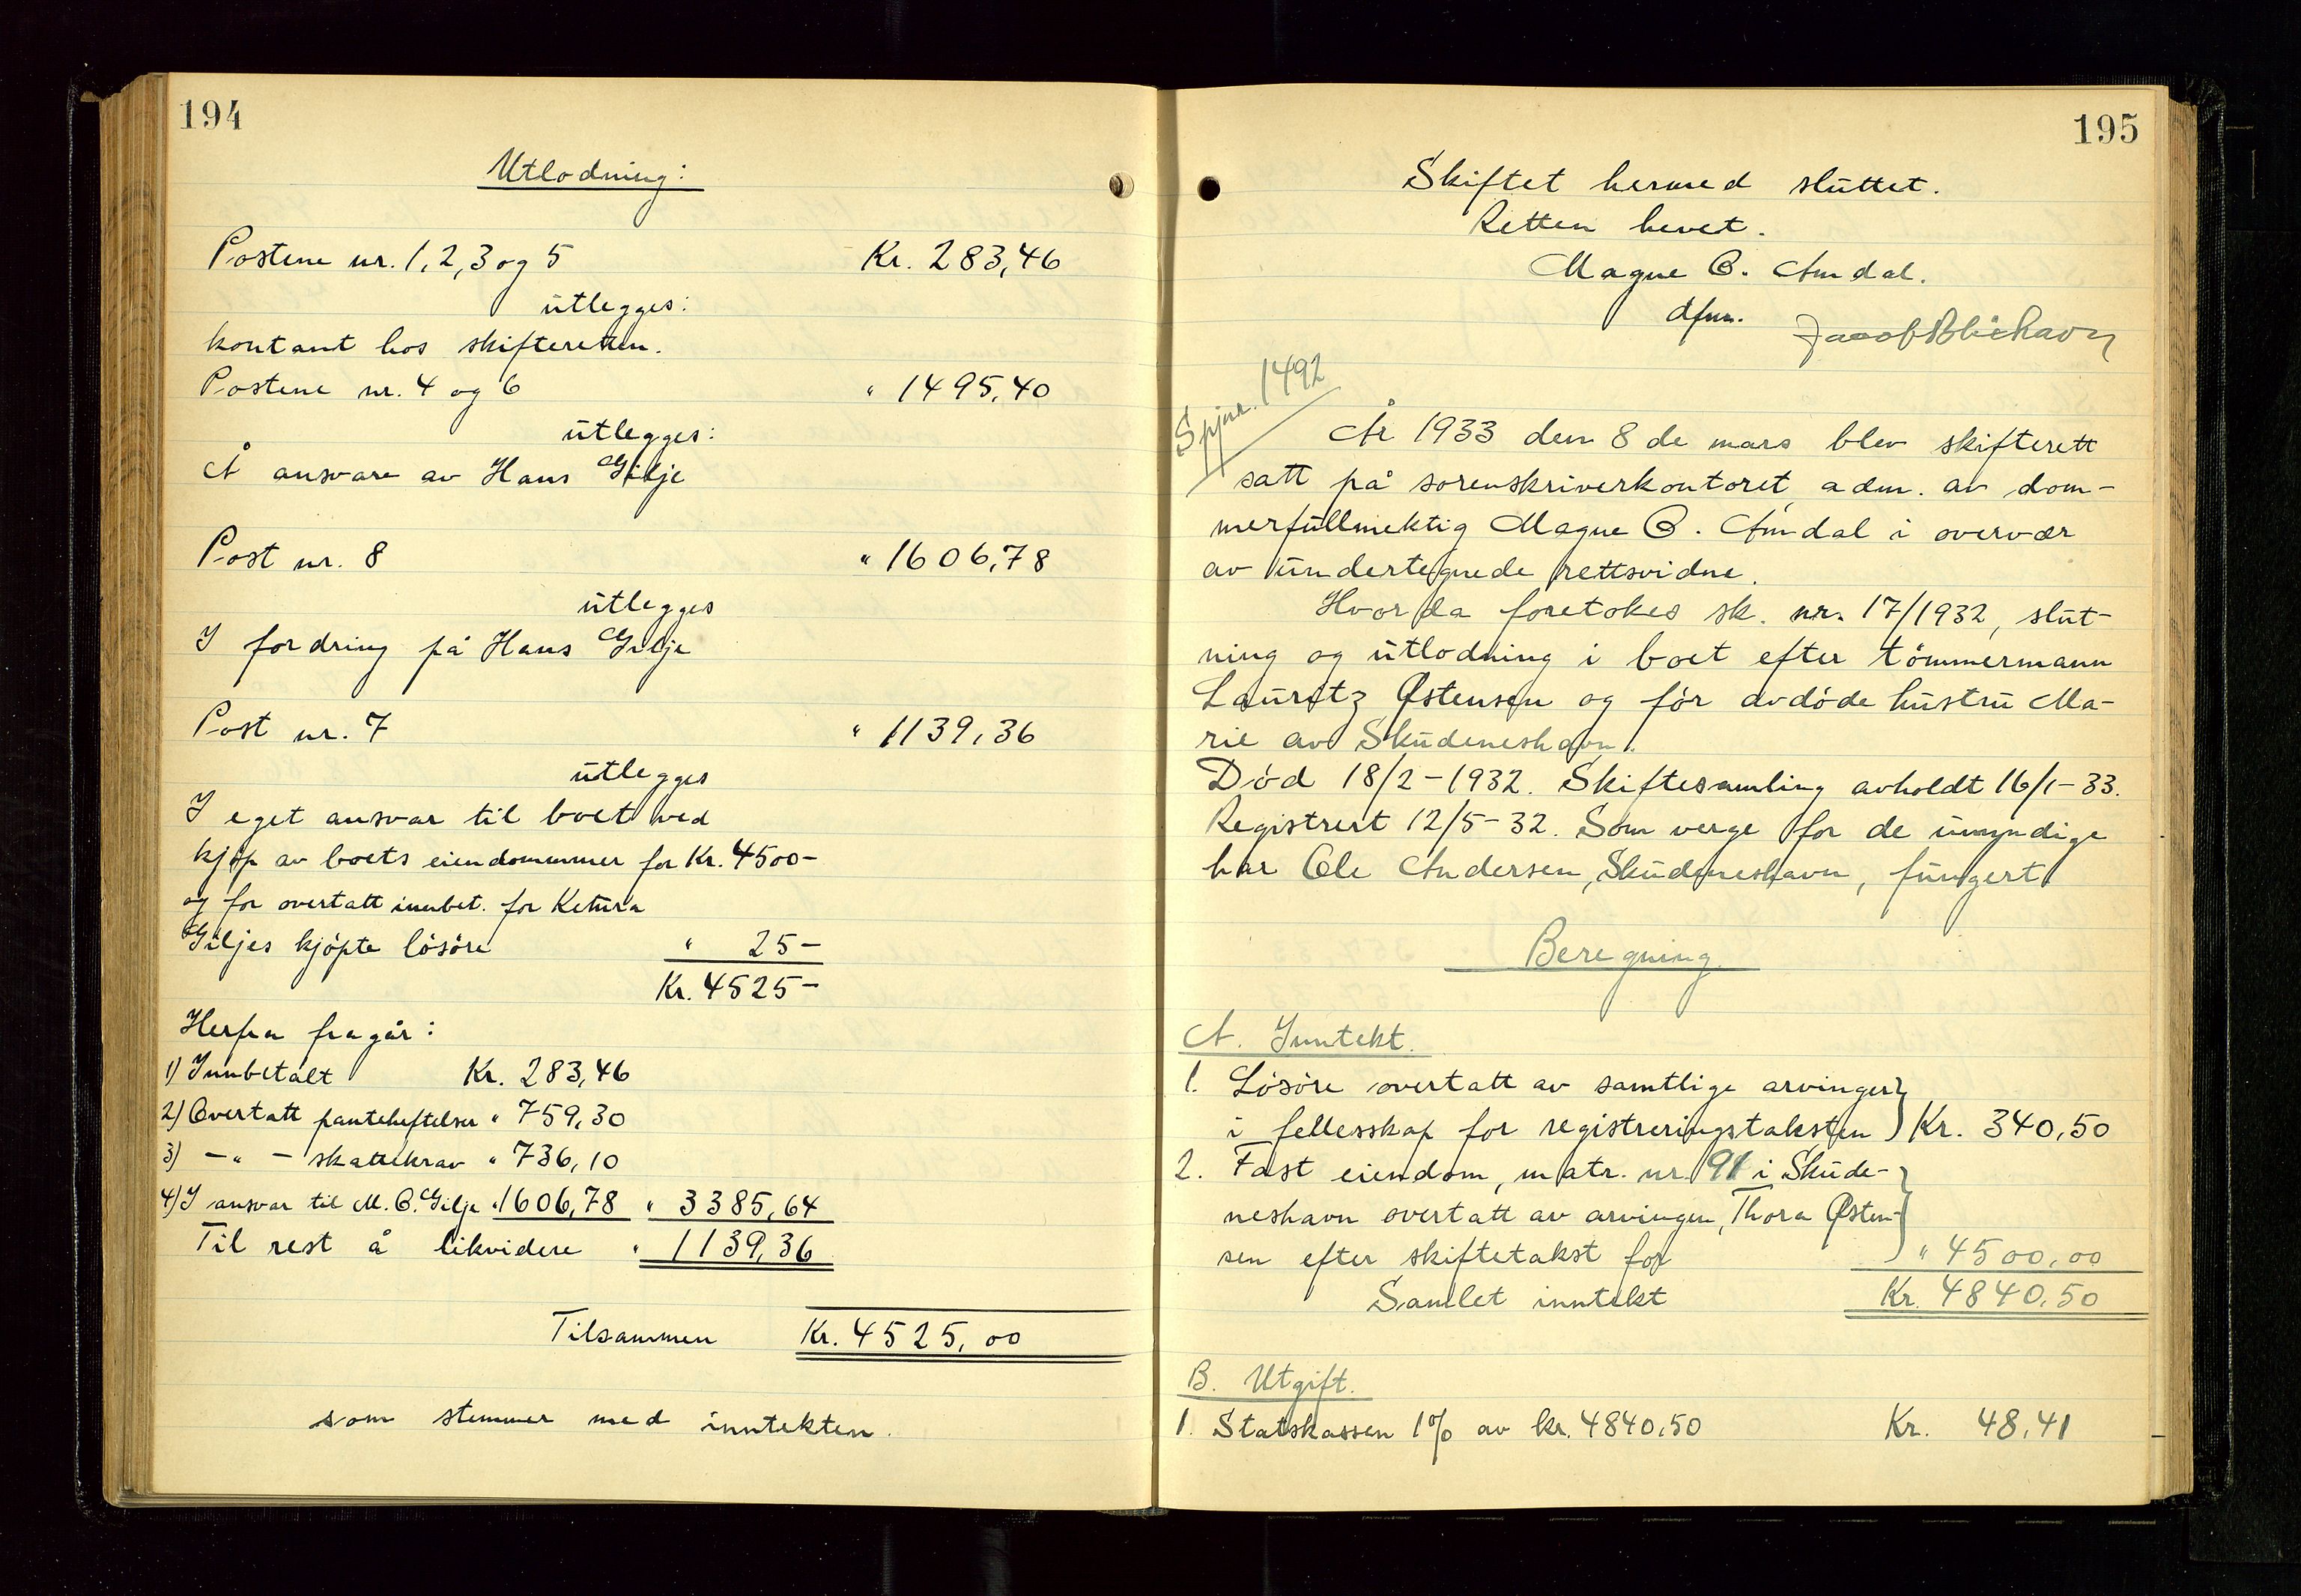 194
Utlodning:
Postene nr. 1, 2, 3 og 5 Kr. 283,46
utlegges:
kontant hos skifteretten.
Postene nr. 4 og 6 " 1495,40
utlegges:
Å ansvare av Hans Gilje
Post nr. 8 " 1606,78
utlegges
I fordring på Hans Gilje
Post nr. 7 " 1139,36
utlegges
I eget ansvar til boet ved
kjøp av boets eiendommer for Kr. 4500-
og for overtatt innbet. for Ketura
Giljes kjøpte løsøre " 25-
Kr. 4525-
Herfra fragår:
1) Innbetalt Kr. 283,46
2) Overtatt panteheftelser " 759,30
3) -"- skattekrav " 736,10
4) I ansvar til M. O. Gilje " 1606,78 " 3385,64
Til rest å likvidere " 1139,36
Tilsammen Kr. 4525,00
som stemmer med inntekten.
195
Skiftet hermed sluttet.
Retten hevet.
Magne O. Amdal.
dfm.
Spjnr. 1492
År 1933 den 8 de mars blev skifterett
satt på sorenskriverkontoret adm. av dom-
merfullmektig Magne O. Amdal i overvær
av undertegnede rettsvidne.
Hvor da foretokes sk. nr. 17/1932, slut-
ning og utlodning i boet efter tømmermann
Lauritz Østensen og før avdøde hustru Ma-
rie av Skudeneshavn.
Død 18/2-1932. Skiftesamling avholdt 16/1-33.
Registrert 12/5-32. Som verge for de umyndige
har Ole Andersen, Skudeneshavn, fungert.
Beregning.
A. Inntekt.
1. Løsøre overtatt av samtlige arvinger
i fellesskap for registreringstaksten Kr. 340,50
2. Fast eiendom, matr. nr. 91 i Skude-
neshavn overtatt av arvingen, Thora Østen-
sen efter skiftetakst for " 4500,00
Samlet inntekt Kr. 4840,50
B. Utgift.
1. Statskassen 1% av kr. 4840,50 Kr. 48,41